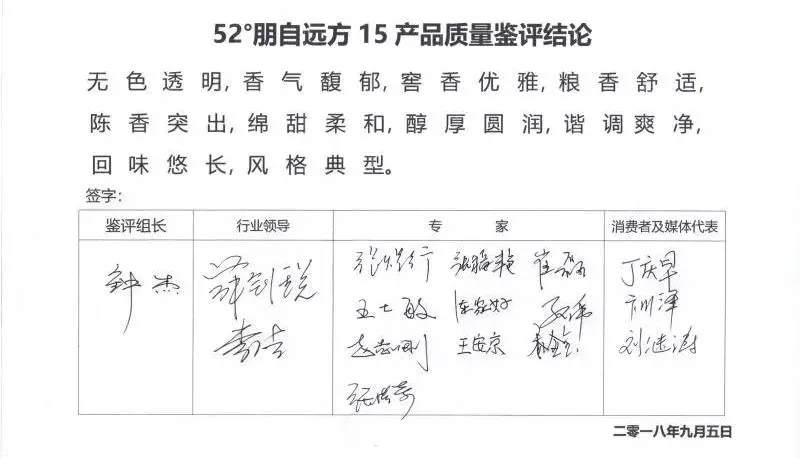 52°朋自远方 15 产品质量鉴评结论
无色透明,香气馥郁,窖香优雅,粮香舒适,
陈香突出,绵甜柔和,醇厚圆润,谐调爽净,
回味悠长,风格典型。
签字:
鉴评组长 行业领导 专 家 消费者及媒体代表
钟杰 丁庆早
王士敏
李吉 王安京 刘进涛
二零一八年九月五日